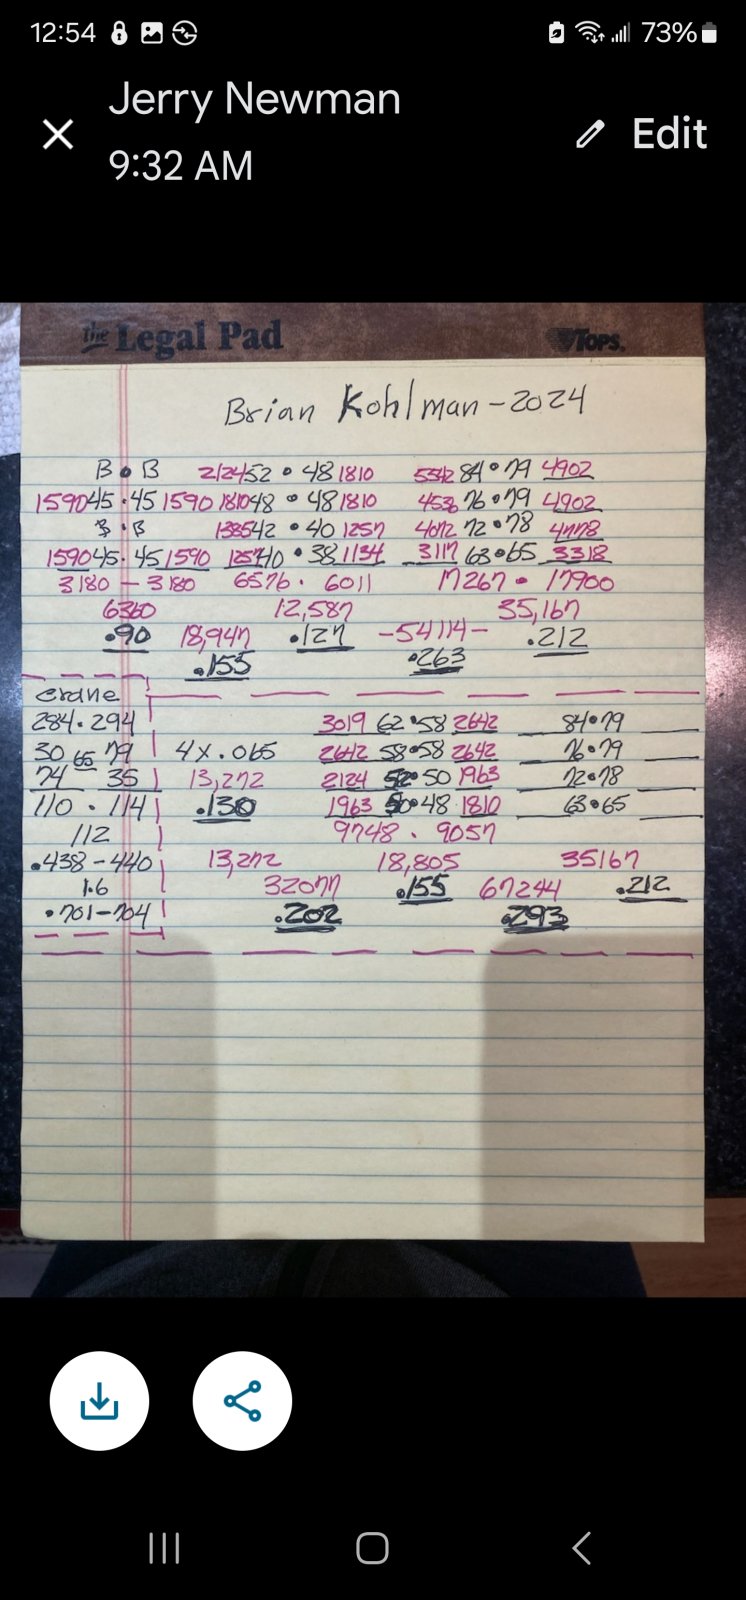 12:54 73%
Jerry Newman
9:32 AM
Edit
the Legal Pad TOPS.
Brian Kohlman - 2024
B • B 2124 52 • 48 1810 5542 84 • 79 4902
1590 45 • 45 1590 1810 48 • 48 1810 4536 76 • 79 4902
B • B 1385 42 • 40 1257 4072 72 • 78 4778
1590 45 • 45 1590 1257 40 • 38 1134 3117 63 • 65 3318
3180 - 3180 6576 • 6011 17267 • 17900
6360 12,587 35,167
.90 18,947 .127 -54114- .212
.155 .263
crane
284 • 294 3019 62 • 58 2642 84 • 79
30 65 79 4x.065 2642 58 • 58 2642 76 • 79
74 35 13,272 2124 52 • 50 1963 72 • 78
110 • 114 .130 1963 50 • 48 1810 63 • 65
112 9748 • 9057
.438 - 440 13,272 18,805 35167
1.6 32077 .155 67244 .212
.701 - 704 .202 .293